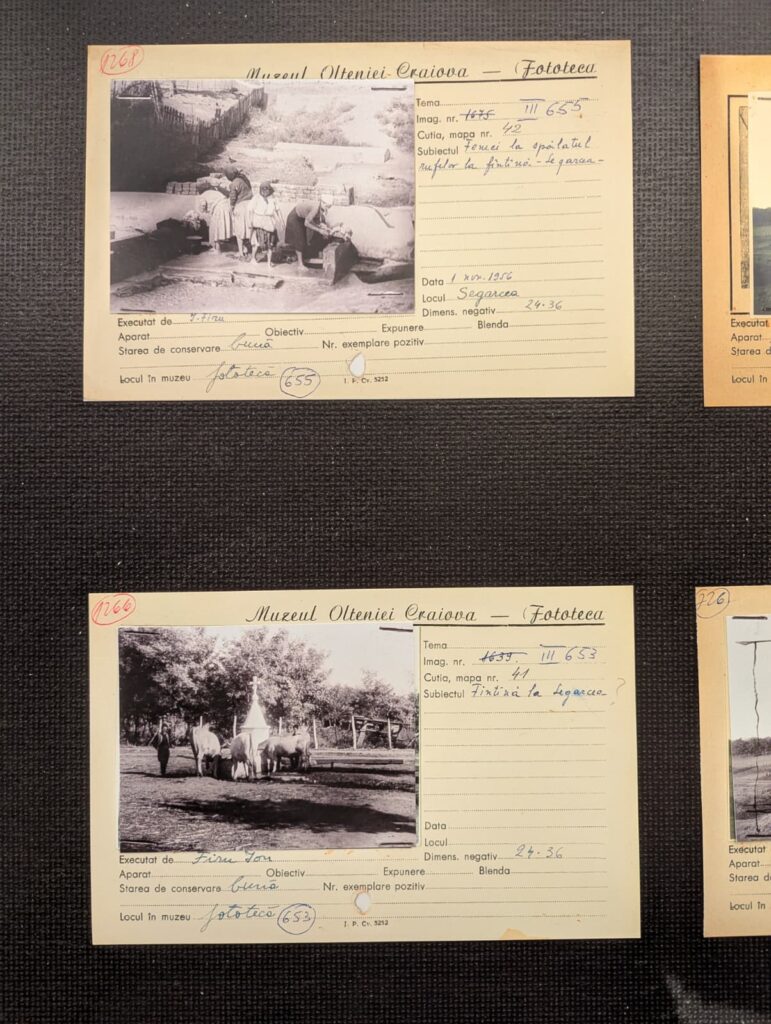 1268
Muzeul Olteniei Craiova — (Fototeca
Tema
Imag. nr. 1675 III 655
Cutia, mapa nr. 42
Subiectul Femei la spălatul
rufelor la fîntînă - Segarcea -
Data 1 nov. 1956
Locul Segarcea
Dimens. negativ 24-36
Executat de I. Firu
Aparat Obiectiv Expunere Blenda
Starea de conservare bună Nr. exemplare pozitiv
Locul în muzeu fototecă 655
I. P. Cv. 5252
1266
Muzeul Olteniei Craiova — (Fototeca
Tema
Imag. nr. 1639 III 653
Cutia, mapa nr. 41
Subiectul Fîntînă la Segarcea ?
Data
Locul
Dimens. negativ 24-36
Executat de Firu Ion
Aparat Obiectiv Expunere Blenda
Starea de conservare bună Nr. exemplare pozitiv
Locul în muzeu fototecă 653
I. P. Cv. 5252
Executat
Aparat
Starea d
Locul în
726
Executat
Aparat
Starea d
Locul în